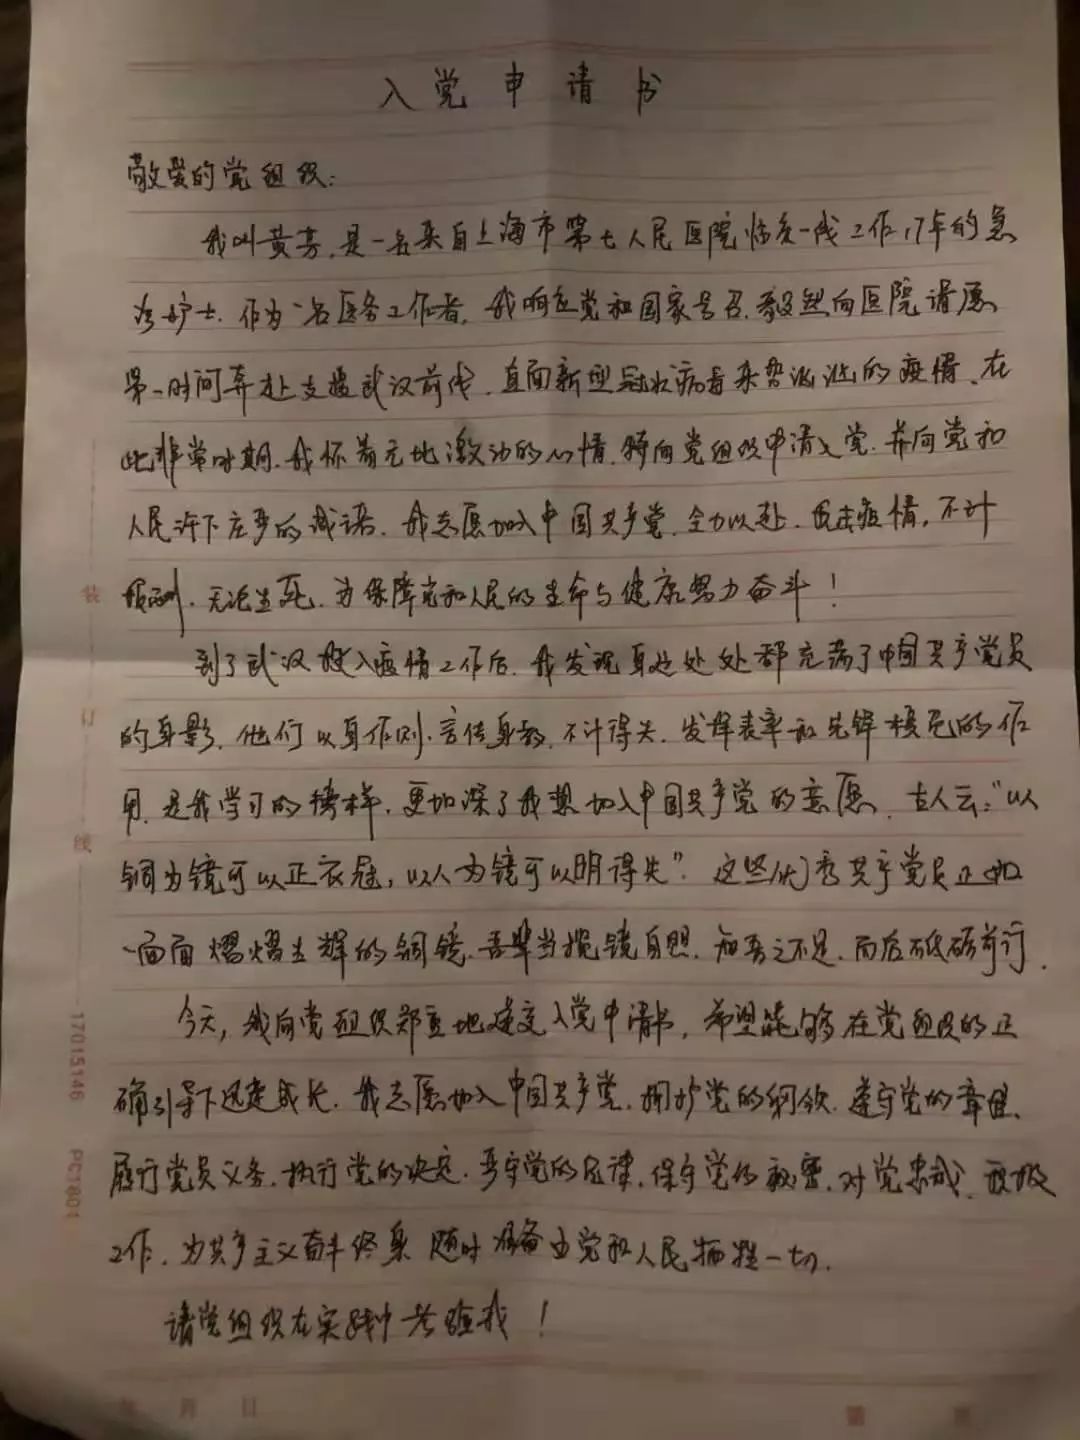 入党申请书
敬爱的党组织:
我叫黄芳,是一名来自上海市第七人民医院临床一线工作17年的急
诊护士.作为一名医务工作者,我响应党和国家号召,毅然向医院请愿
第一时间奔赴支援武汉前线.直面新型冠状病毒来势汹汹的疫情、在
此非常时期.我怀着无比激动的心情,特向党组织申请入党.并向党和
人民许下庄严的诚诺.我志愿加入中国共产党.全力以赴.抗击疫情,不计
报酬.无论生死.为保障党和人民的生命与健康努力奋斗!
到了武汉投入疫情工作后.我发现身边处处都充满了中国共产党员
的身影.他们以身作则.言传身教.不计得失.发挥表率和先锋模范的作
用.是我学习的榜样,更加深了我想加入中国共产党的意愿.古人云:"以
铜为镜可以正衣冠,以人为镜可以明得失".这些优秀共产党员正如
一面面熠熠生辉的铜镜.吾辈当揽镜自照.知吾之不足.而后砥砺前行.
今天,我向党组织郑重地递交入党申请书,希望能够在党组织的正
确引导下迅速成长.我志愿加入中国共产党.拥护党的纲领.遵守党的章程.
履行党员义务.执行党的决定.严守党的纪律.保守党的秘密.对党忠诚.积极
工作.为共产主义奋斗终身 随时准备为党和人民牺牲一切.
请党组织在实践中考验我!
装
订
线
17015146 PC1801
年 月 日
第 页